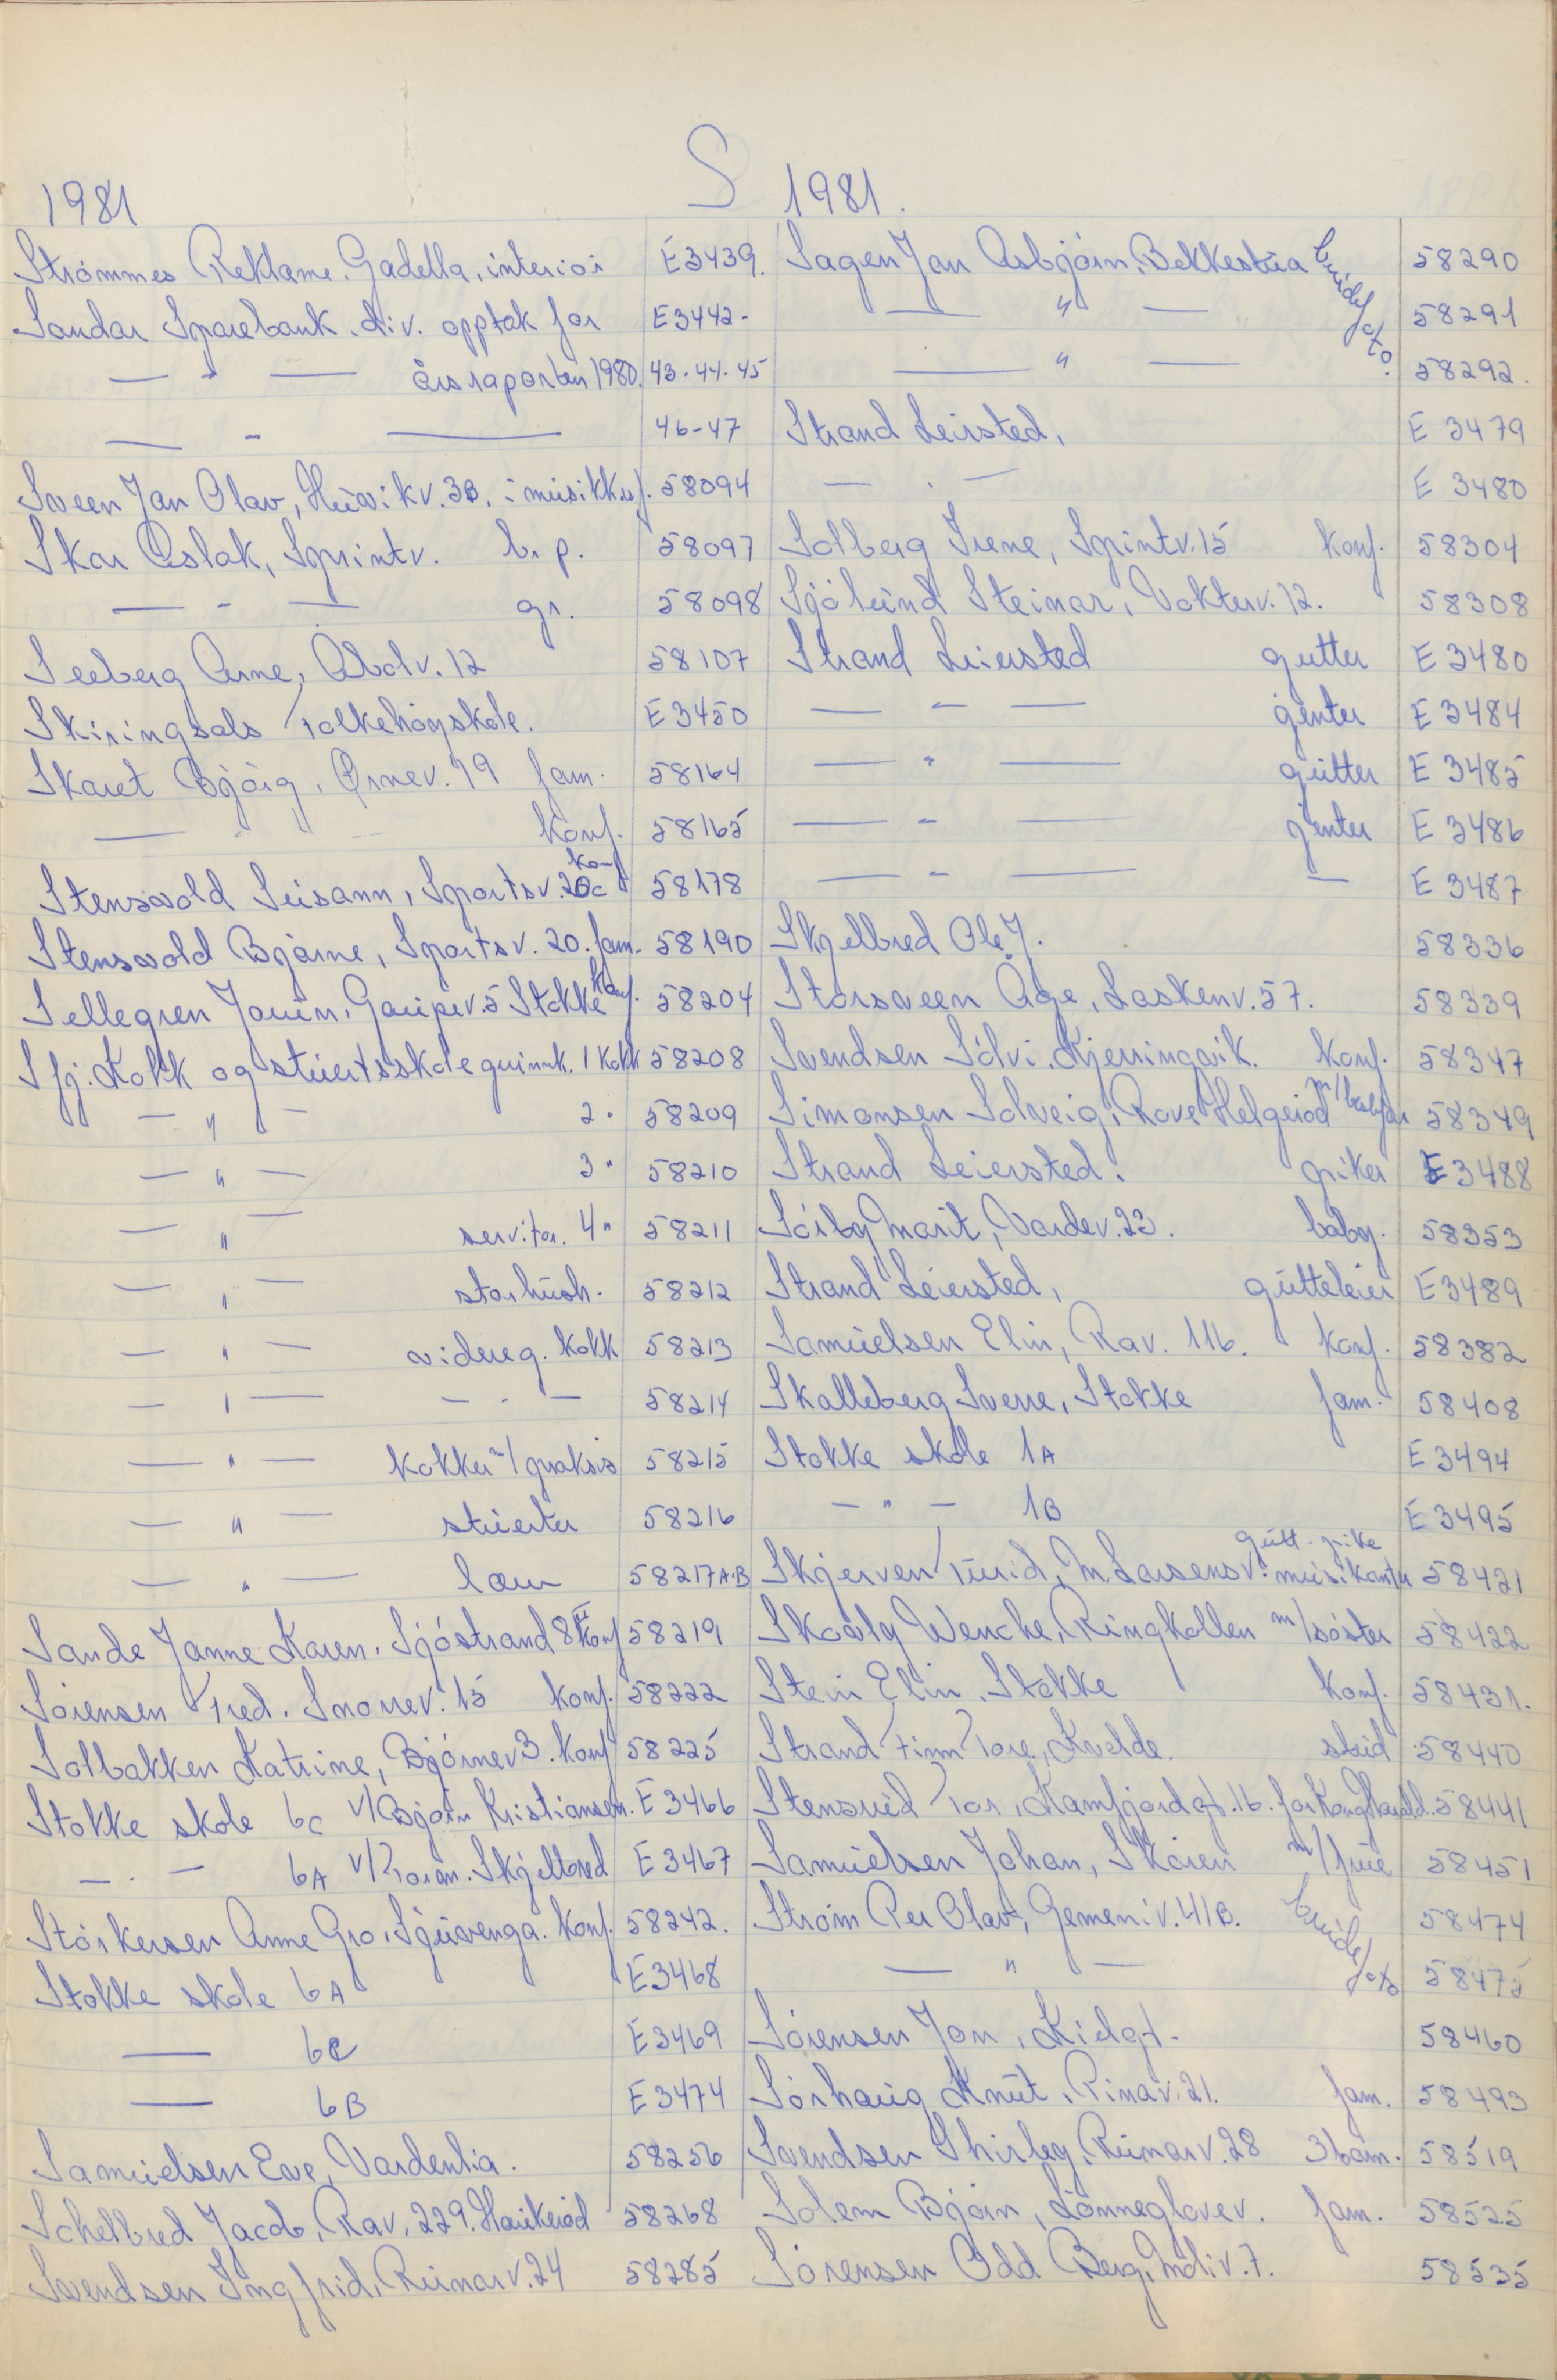 S
1981
Strømmes Reklame. Gadella, interiør E3439.
Sandar Sparebank. div. opptak for E3442-
— " — årsraporten 1980. 43-44-45
— " — 46-47
Sveen Jan Olav, Huvikv. 3B. i musikkuf. 58094
Skar Aslak, Sprintv. b.p. 58097
— " — gr. 58098
Seeberg Arne, Odolv. 12 58107
Skiringsals Folkehøyskole. E3450
Skaret Bjørg, Ørnev. 19 fam. 58164
— " — konf. 58165
Stensvold Susann, Sportsv. 20c konf 58178
Stensvold Bjarne, Sportsv. 20. fam. 58190
Sellegren Jouin, Gaupev. 5 Stokke konf. 58204
Sfj. Kokk og stuertskole grunnk. 1 kokk 58208
— " — 2 " 58209
— " — 3 " 58210
— " — servitør. 4 " 58211
— " — storhush. 58212
— " — videreg. kokk 58213
— " — — " — 58214
— " — kokker m/ praksis 58215
— " — stuerter 58216
— " — lærer 58217A-B
Sande Janne Karen, Sjøstrand 8 II konf 58219
Sørensen Fred. Snorrev. 15 konf. 58222
Solbakken Katrine, Bjørnev 3. konf 58225
Stokke skole 6c v/Bjørn Kristiansen. E3466
— " — 6A v/Roran. Skjelbred E3467
Størkersen Anne Gro, Sguvenga. konf. 58242.
Stokke skole 6A E3468
— 6C E3469
— 6B E3474
Samuelsen Eve, Vardenlia. 58256
Schelbred Jacob, Rav. 229. Haukerød 58268
Svendsen Ingfrid, Runarv. 24 58285
1981.
Sagen Jan Asbjørn, Bekkestua brudefoto. 58290
— " — 58291
— " — 58292.
Strand Leirsted, E 3479
— " — E 3480
Solberg Irene, Sprintv. 15 konf. 58304
Sjølund Steinar, Vokterv. 12. 58308
Strand Leiersted gutter E 3480
— " — jenter E 3484
— " — gutter E 3485
— " — jenter E 3486
— " — — E 3487
Skjelbred Ole J. 58336
Storsveen Åge, Laskenv. 57. 58339
Svendsen Sølvi, Kjerringvik. konf. 58347
Simonsen Solveig, Rove Helgerød m/barnebarn 58349
Strand Leiersted. piker E3488
Sørby Marit, Vardev. 23. baby. 58353
Strand Leiersted, gutteleier E3489
Samuelsen Elin, Rav. 116. konf. 58382
Skalleberg Sverre, Stokke fam. 58408
Stokke skole 1A E3494
— " — 1B E3495
Skjerven Turid, M. Larsensv. gutt - pike musikanter 58421
Skovly Wenche, Ringkollen m/søster 58422
Stein Elin, Stokke konf. 58431.
Strand Finn Tore, Kvelde. stud 58440
Stensrud Tor, Kamfjordgt. 16. for Kong Harald. 58441
Samuelsen Johan, Skåren m/frue 58451
Strøm Per Olav, Gemeniv. 41B. brudefoto 58474
— " — 58475
Sørensen Jon, Kidgt. 58460
Sørhaug Knut, Pinav. 21. fam. 58493
Svendsen Shirley, Runarv. 28 3 barn. 58519
Solem Bjørn, Lønneglovev. fam. 58525
Sørensen Odd Berg, Mdiv. 7. 58535